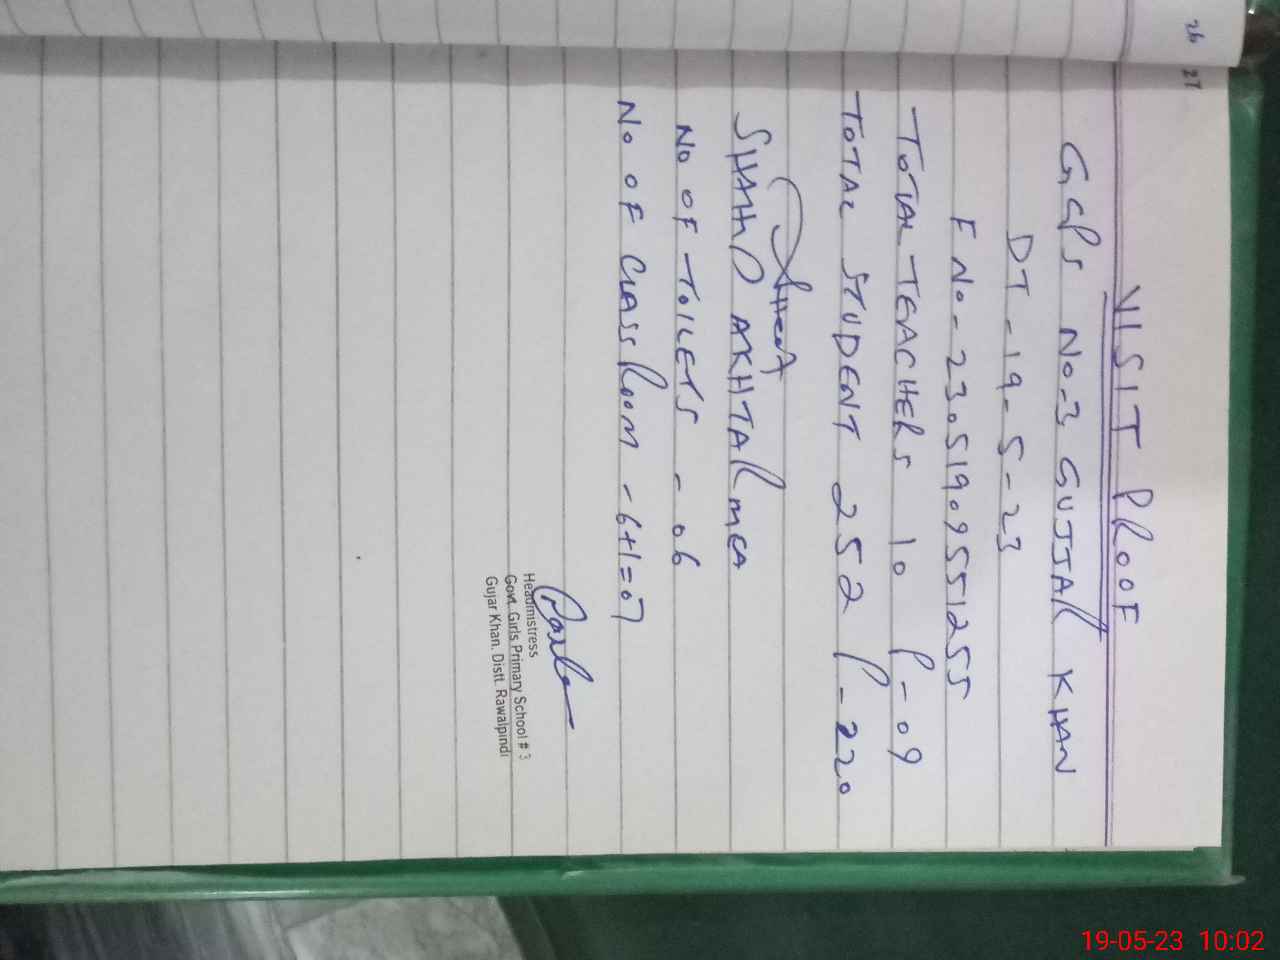 26 27
VISIT PROOF
GGPS NO-3 GUJJAR KHAN
DT-19-5-23
F NO-23051909551255
TOTAL TEACHERS 10 P-09
TOTAL STUDENT 252 P-220
SHAHID AKHTAR MEA
NO OF TOILETS - 06
NO OF CLASS ROOM - 6+1=07
Headmistress
Govt. Girls Primary School # 3
Gujar Khan. Distt. Rawalpindi
19-05-23 10:02